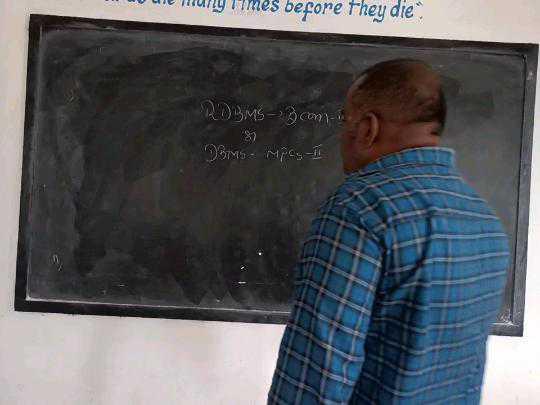 die many Times before they die".
RDBMS → Bcom - II
or
DBMS - MPCs - II